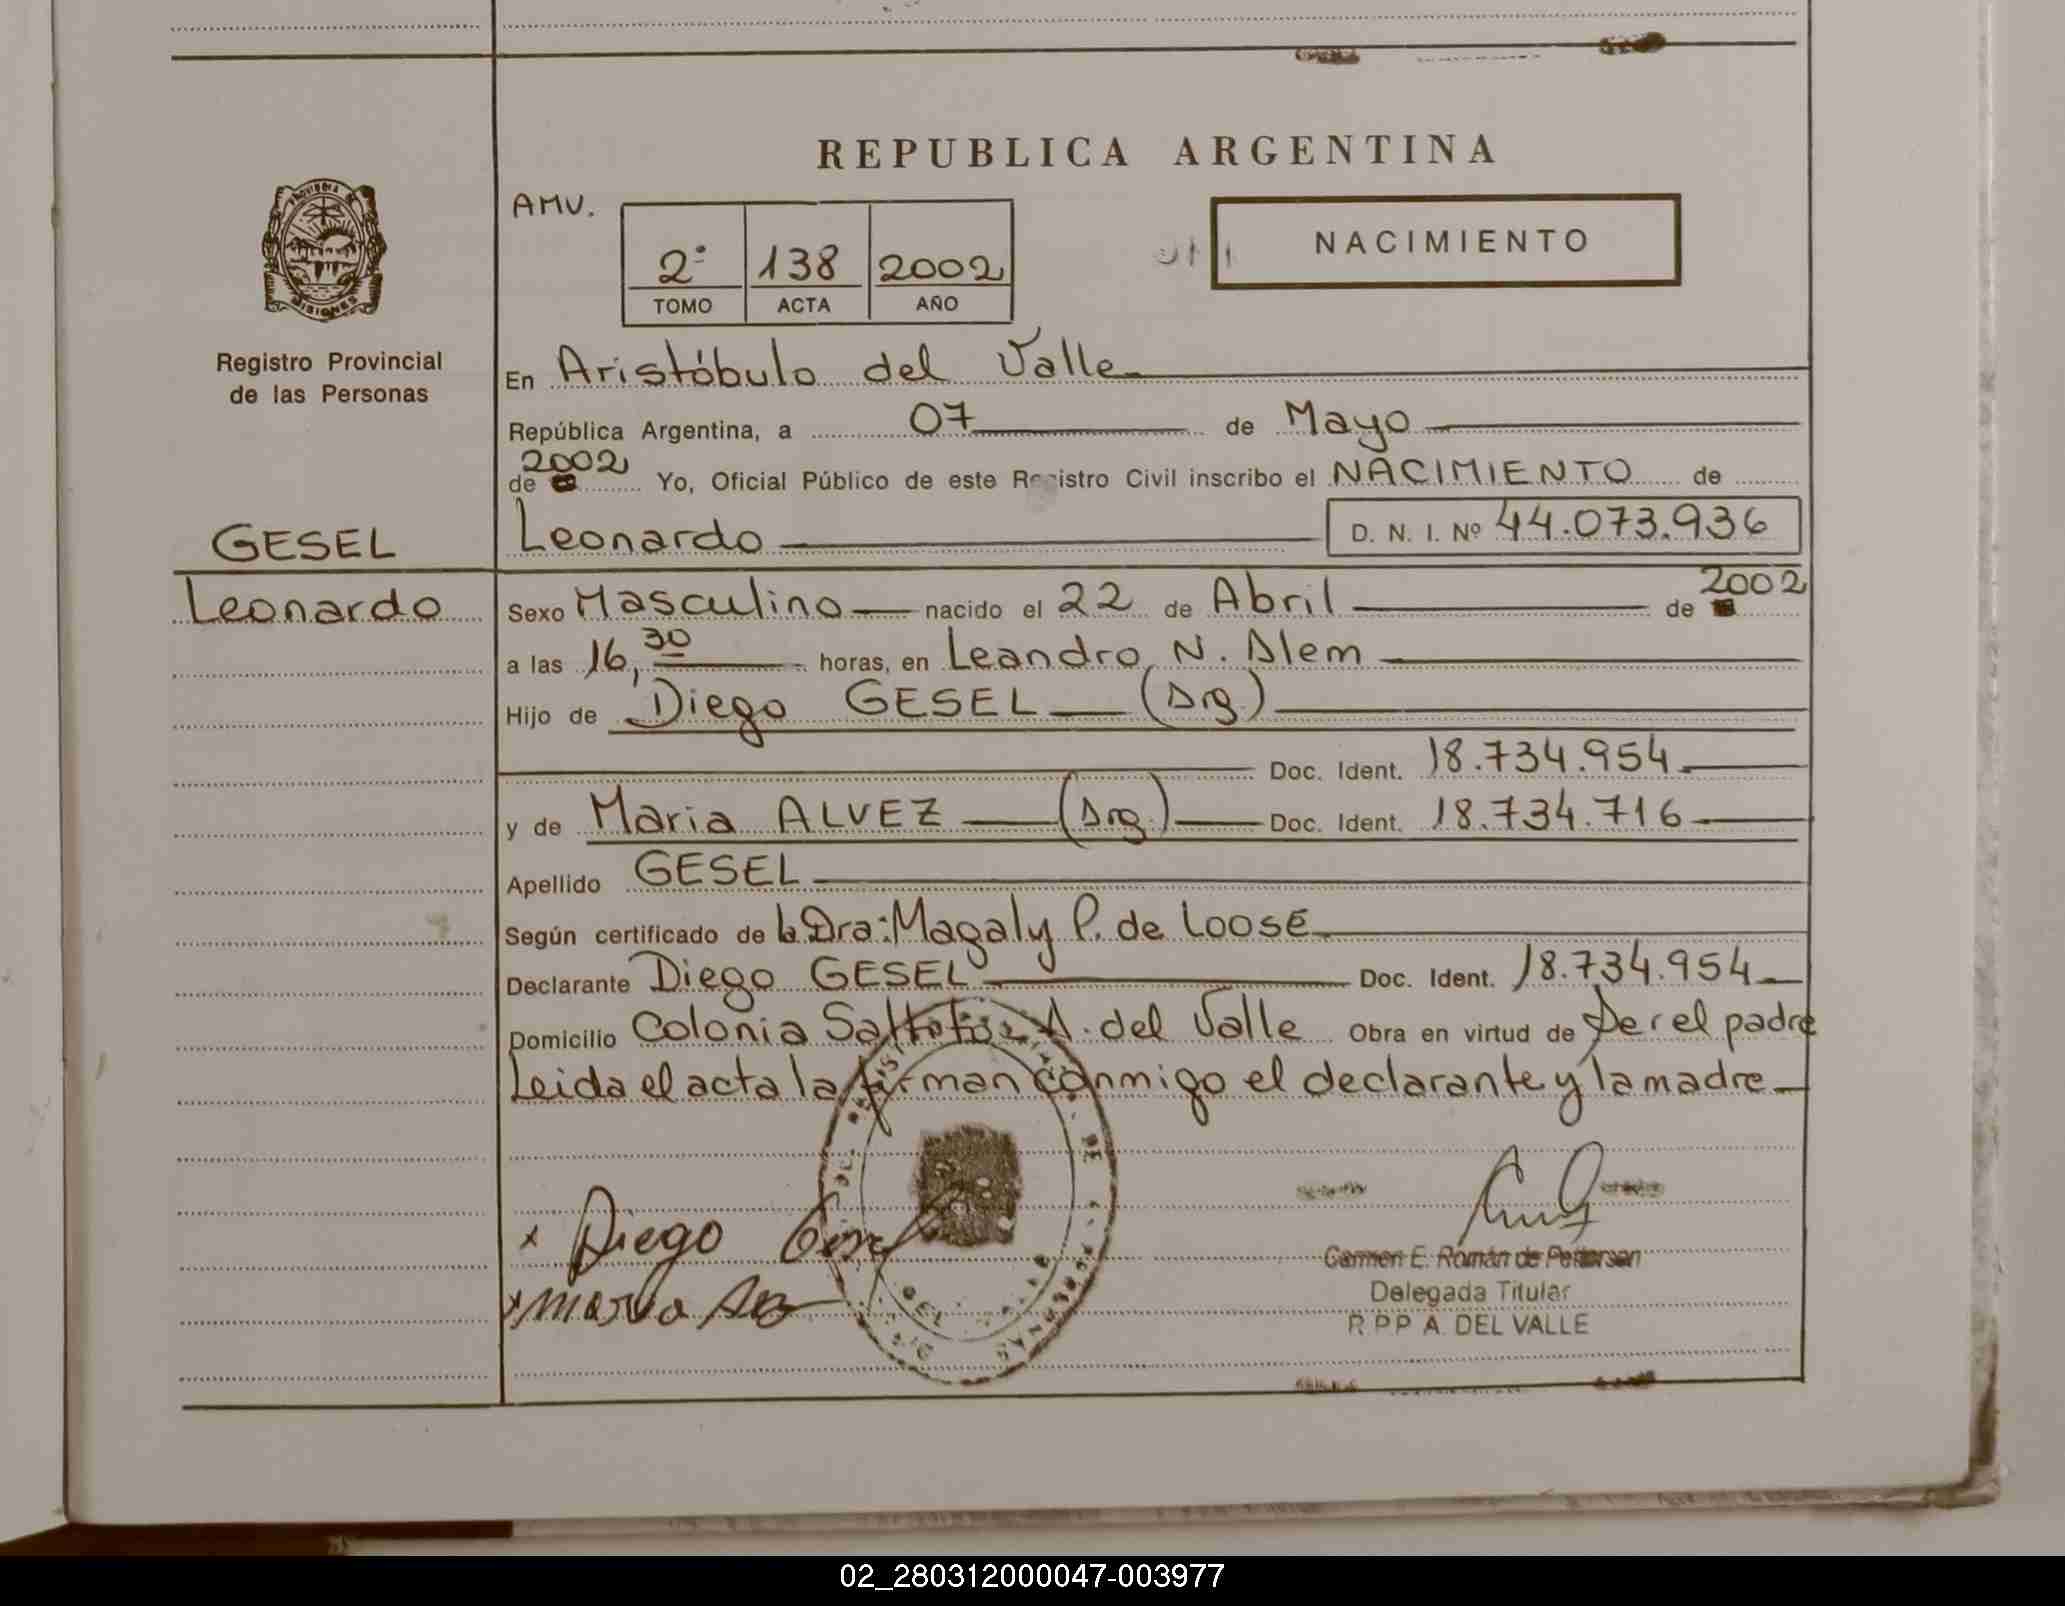 REPUBLICA ARGENTINA
AMV.
2º 138 2002
TOMO ACTA AÑO
NACIMIENTO
PROVINCIA DE MISIONES
Registro Provincial
de las Personas
En Aristóbulo del Valle
República Argentina, a 07 de Mayo
de 2002 Yo, Oficial Público de este Registro Civil inscribo el NACIMIENTO de
GESEL
Leonardo
Leonardo D. N. I. Nº 44.073.936
Sexo Masculino nacido el 22 de Abril de 2002
a las 16,30 horas, en Leandro N. Alem
Hijo de Diego GESEL (Arg)
Doc. Ident. 18.734.954
y de Maria ALVEZ (Arg.) Doc. Ident. 18.734.716
Apellido GESEL
Según certificado de la Dra: Magaly P. de Loose
Declarante Diego GESEL Doc. Ident. 18.734.954
Domicilio Colonia A. del Valle Obra en virtud de Ser el padre
Leida el acta la firman conmigo el declarante y la madre
x Diego Gesel
x maria
Carmen E. Román de Pettersen
Delegada Titular
R.P.P A. DEL VALLE
02_280312000047-003977